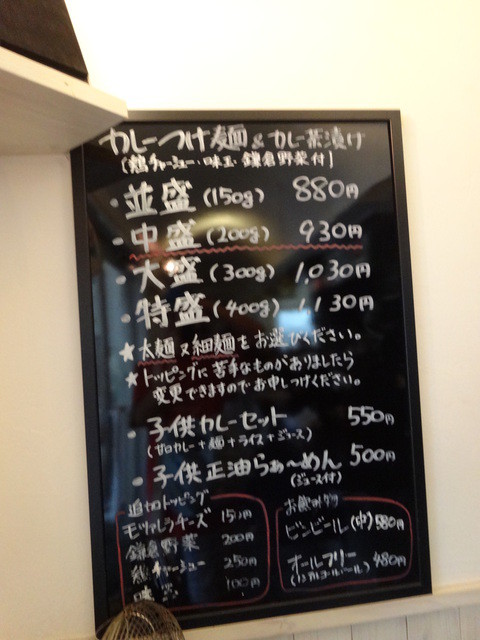 カレーつけ麺 & カレー茶漬け
(鶏チャーシュー・味玉・鎌倉野菜付)
・並盛 (150g) 880円
・中盛 (200g) 930円
・大盛 (300g) 1,030円
・特盛 (400g) 1,130円
★太麺又細麺をお選びください。
★トッピングに苦手なものがありましたら
変更できますのでお申しつけください。
・子供カレーセット 550円
(甘口カレー+麺+ライス+ジュース)
・子供正油らぁ〜めん 500円
(ジュース付)
追加トッピング
モッツァレラチーズ 150円
鎌倉野菜 200円
鶏チャーシュー 250円
味玉 100円
お飲み物
ビンビール(中) 580円
オールフリー 480円
(ノンアルコールビール)